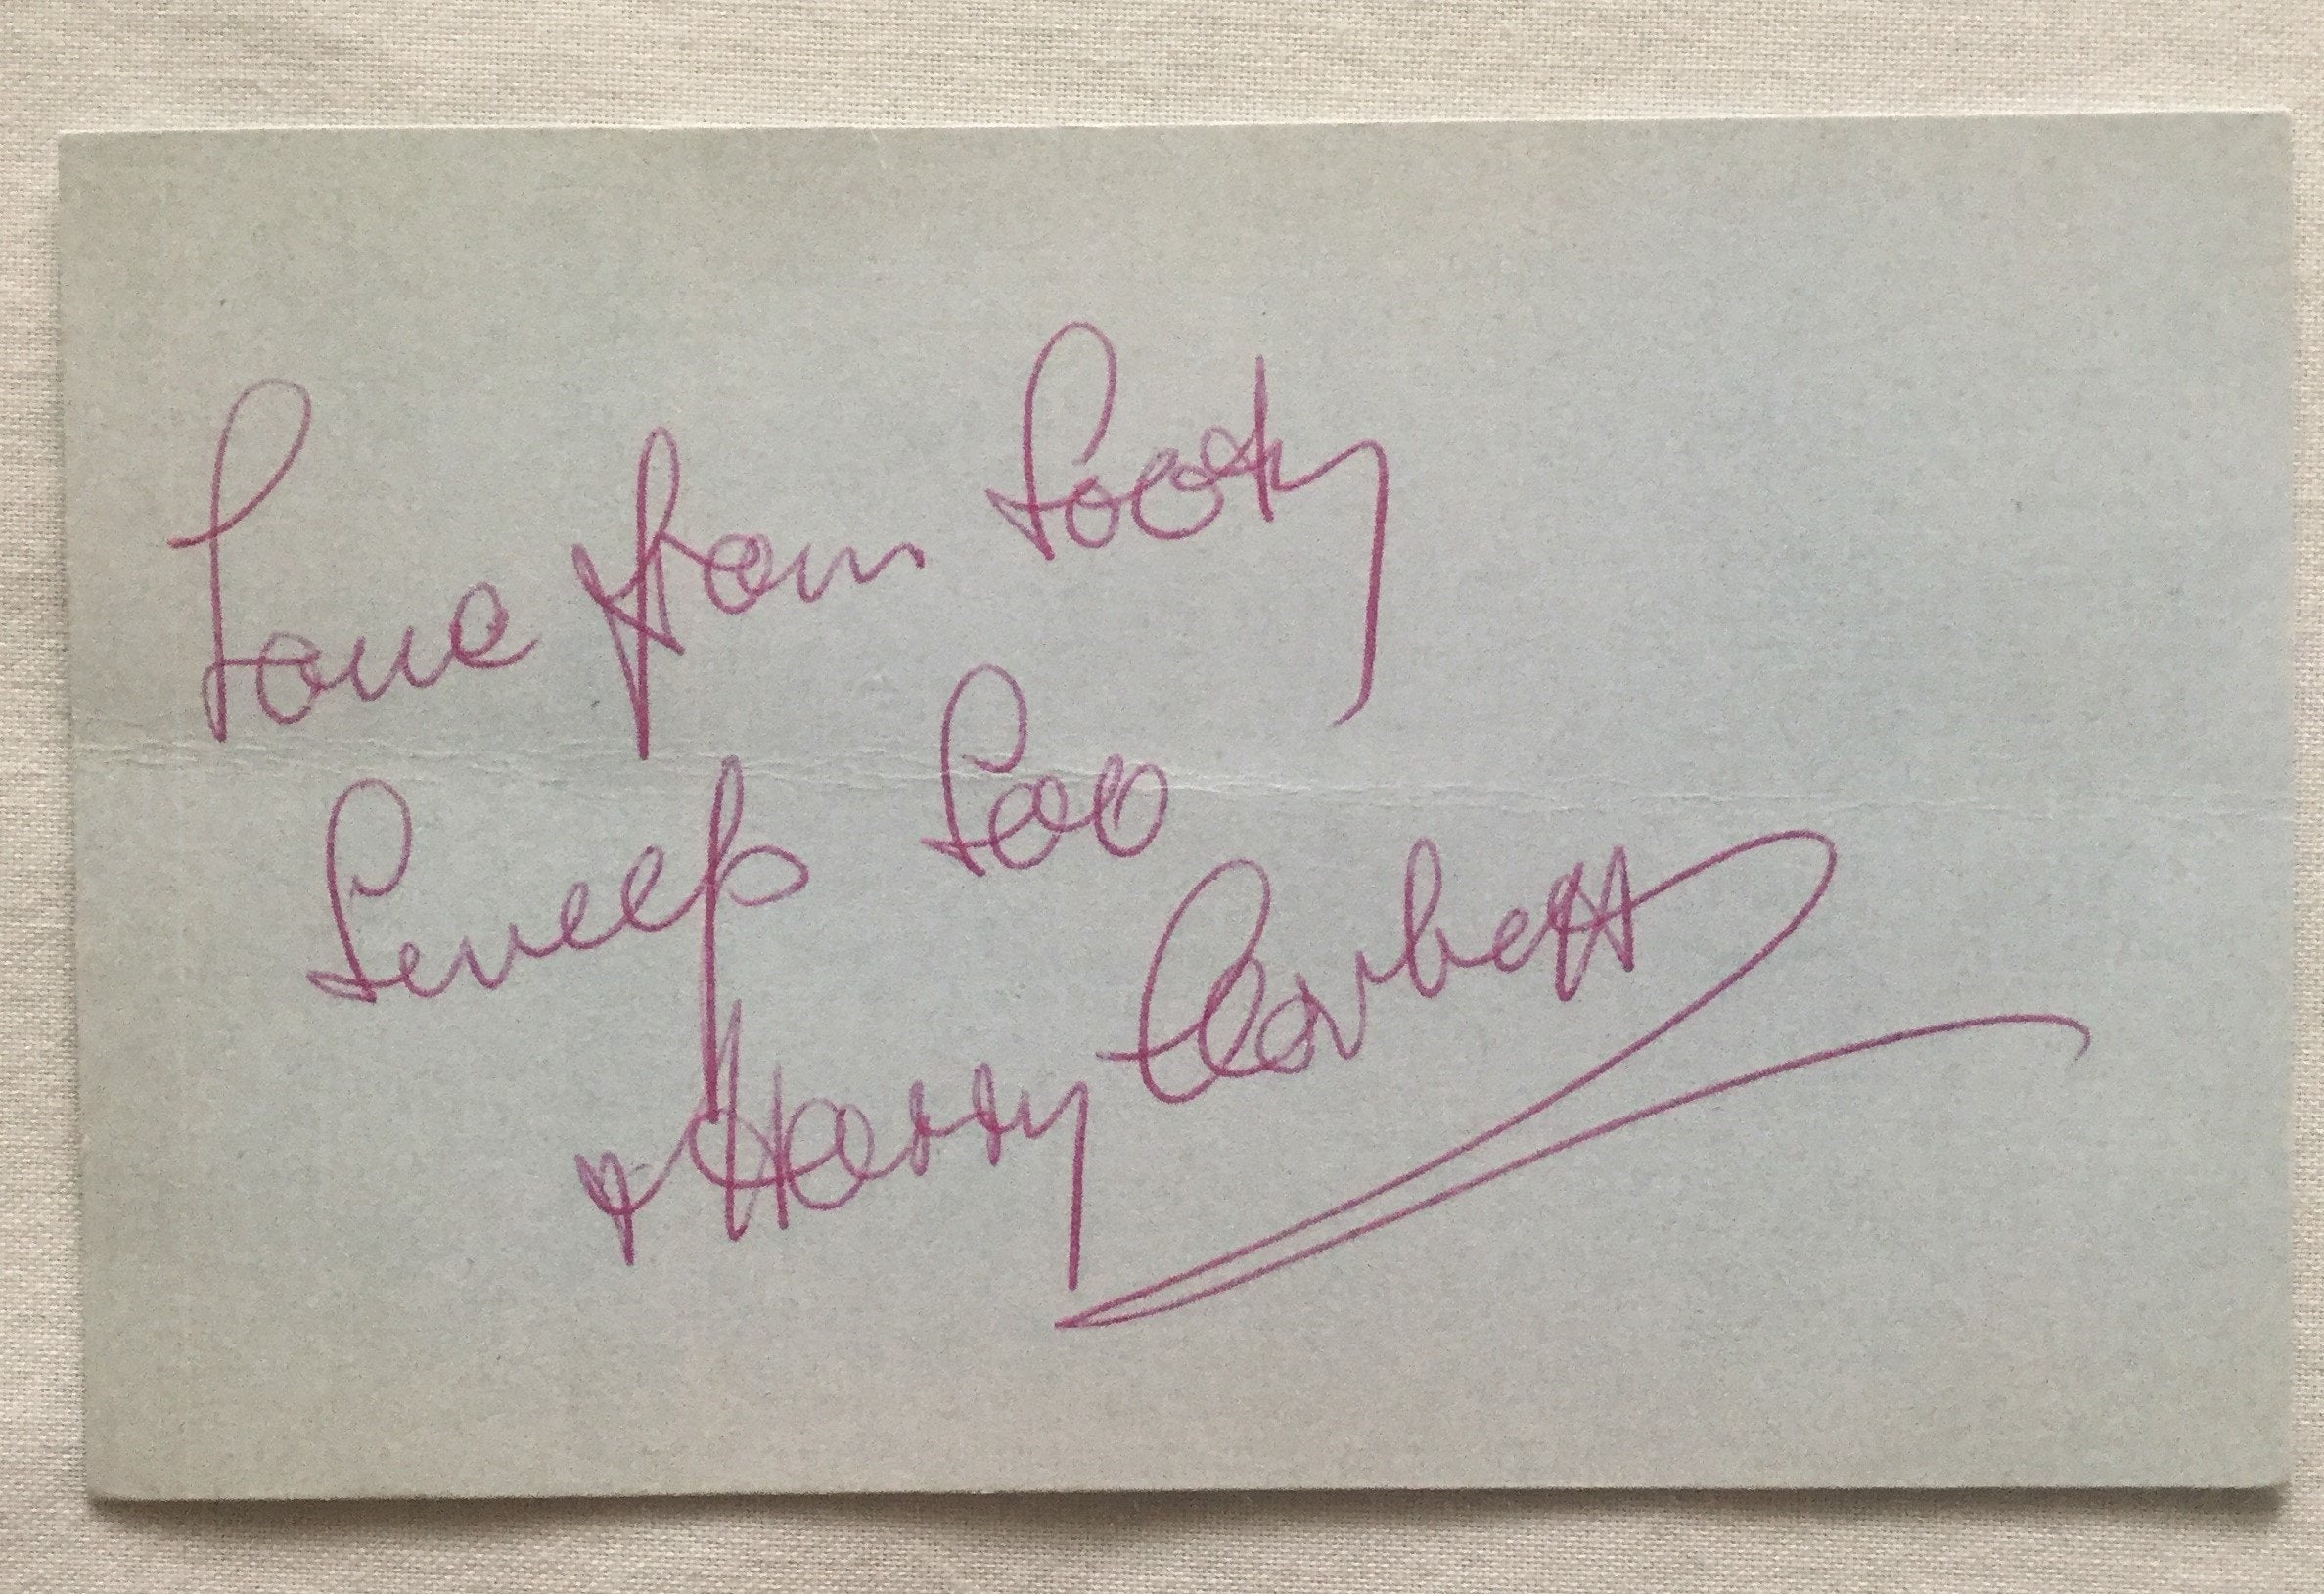 Love from Sooty
Sweep Soo
& Harry Corbett